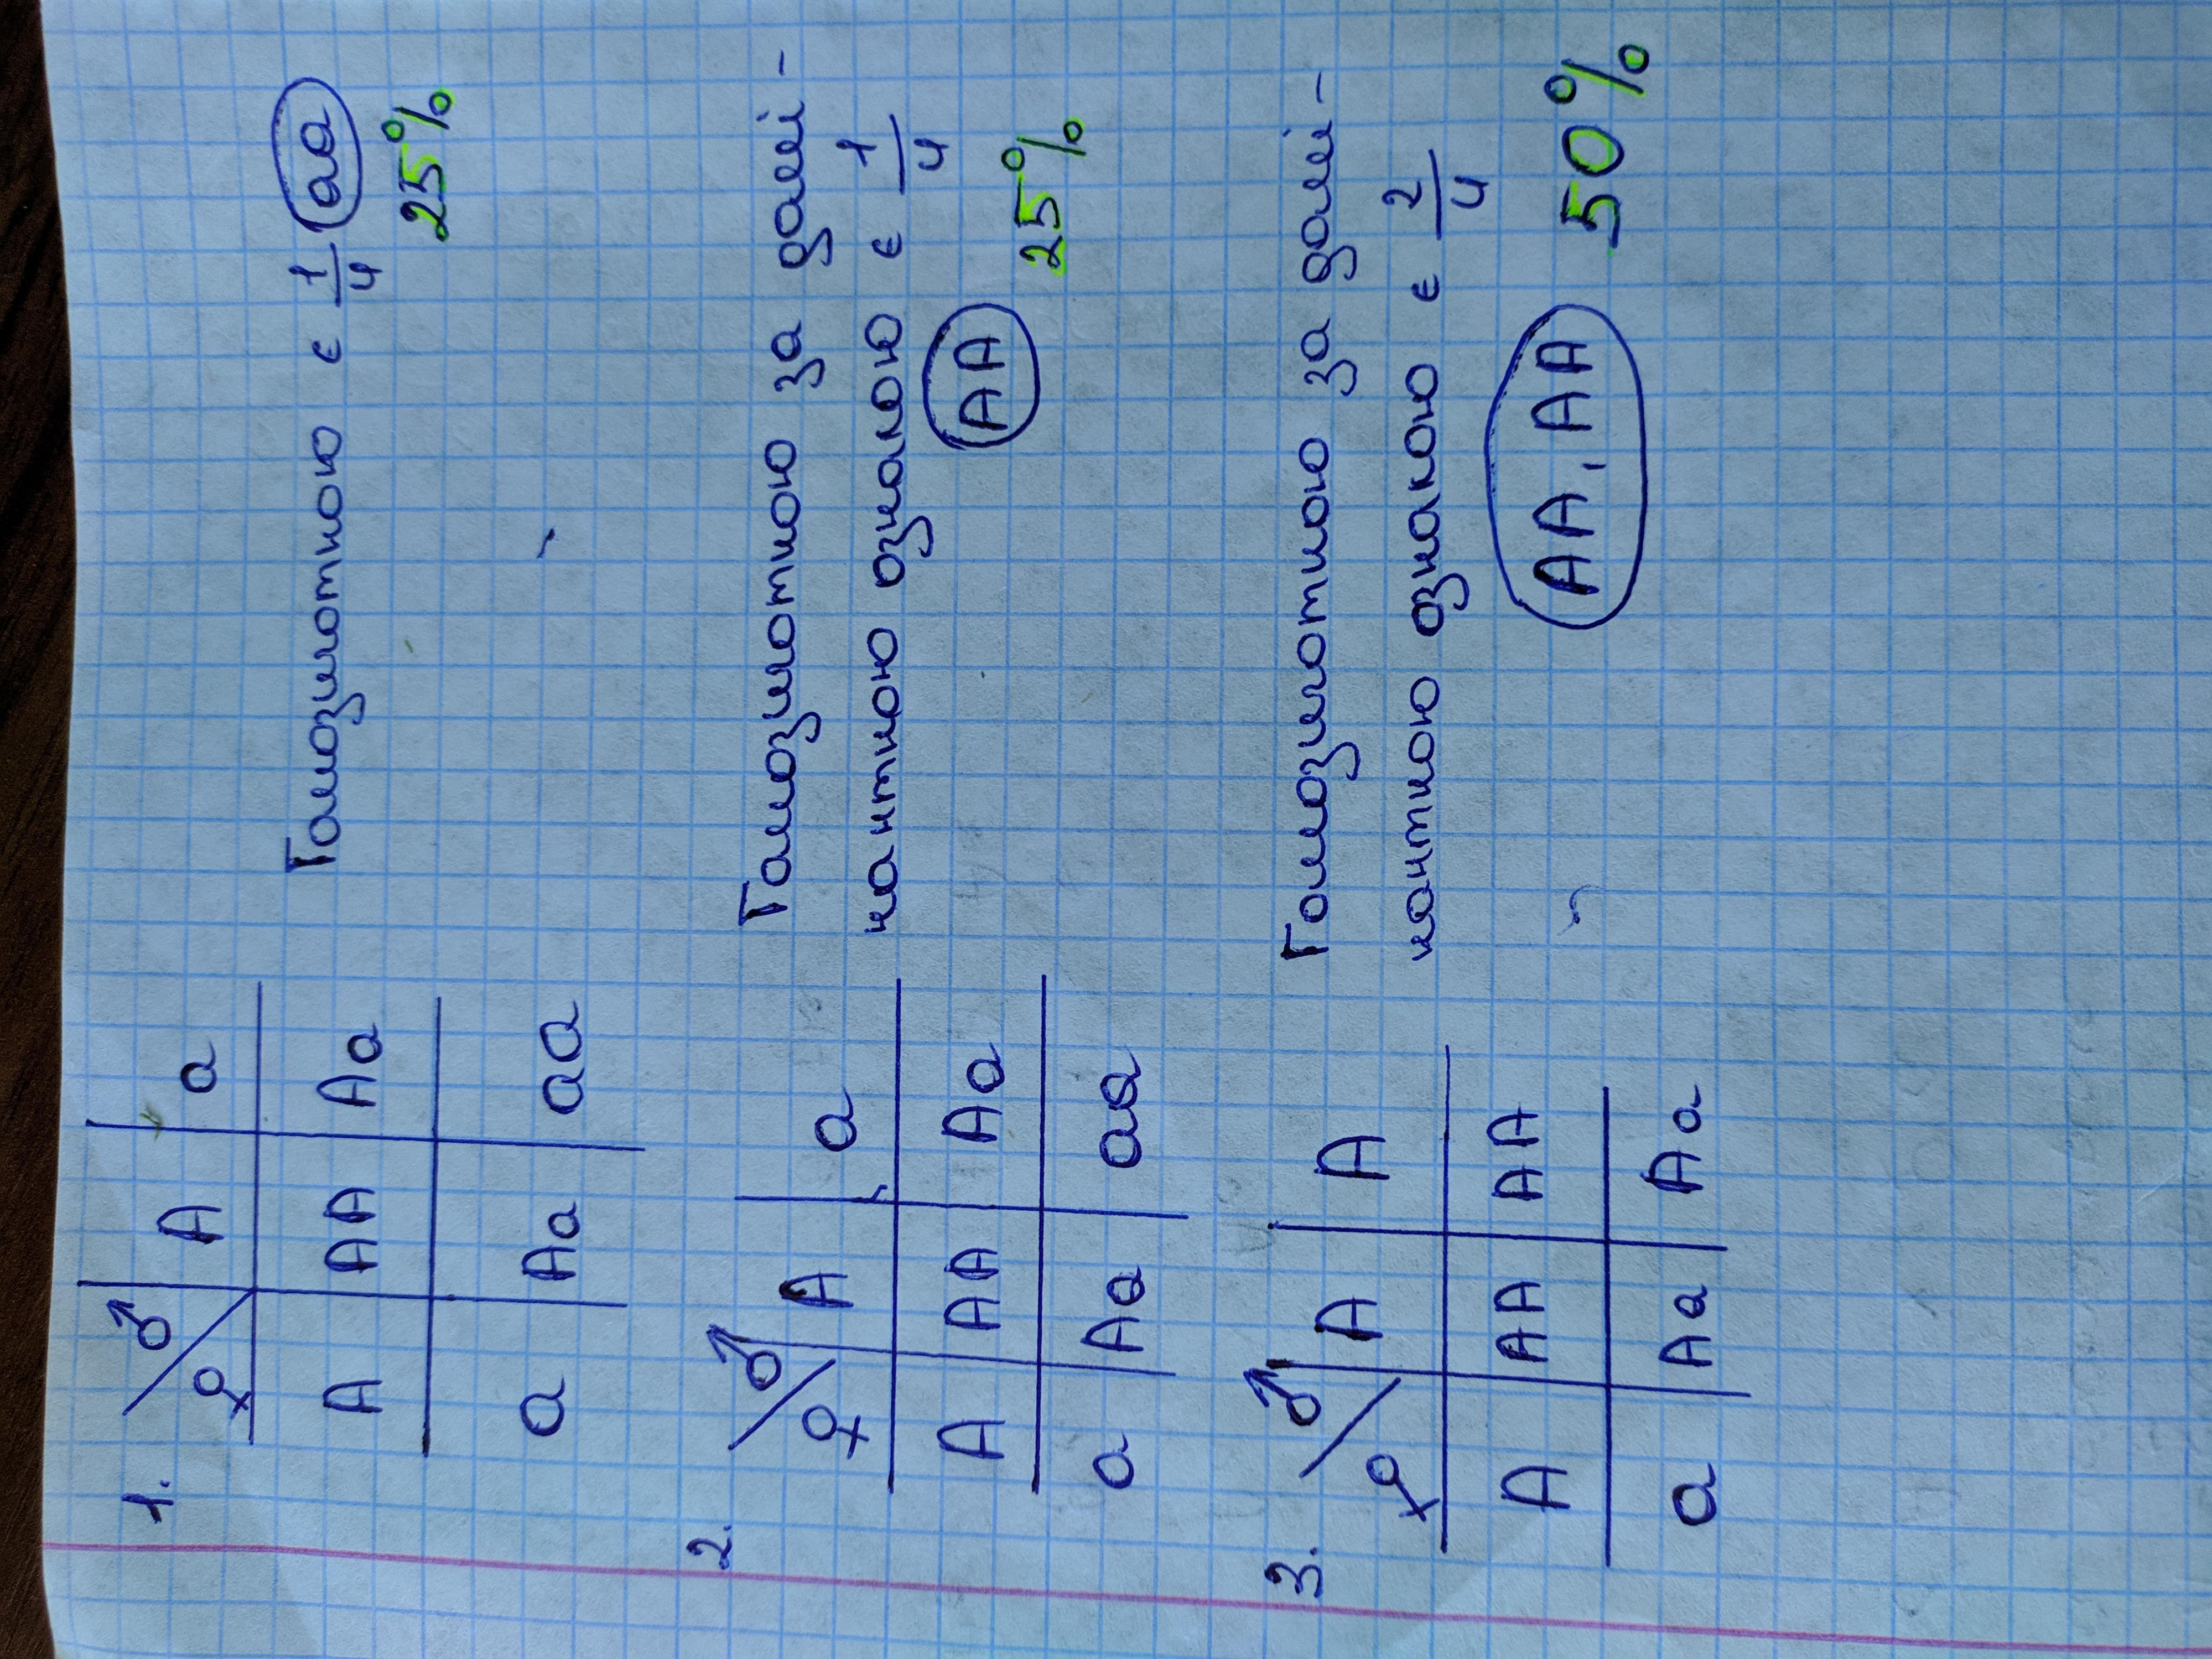 1.
♂ A a
♀
A AA Aa
a Aa aa
Гомозиготною є 1/4 aa
25%
2.
♂ A a
♀
A AA Aa
a Aa aa
Гомозиготною за домі-
нантною ознакою є 1/4
AA
25%
3.
♂ A A
♀
A AA AA
a Aa Aa
Гомозиготною за домі-
нантною ознакою є 2/4
AA, AA 50%